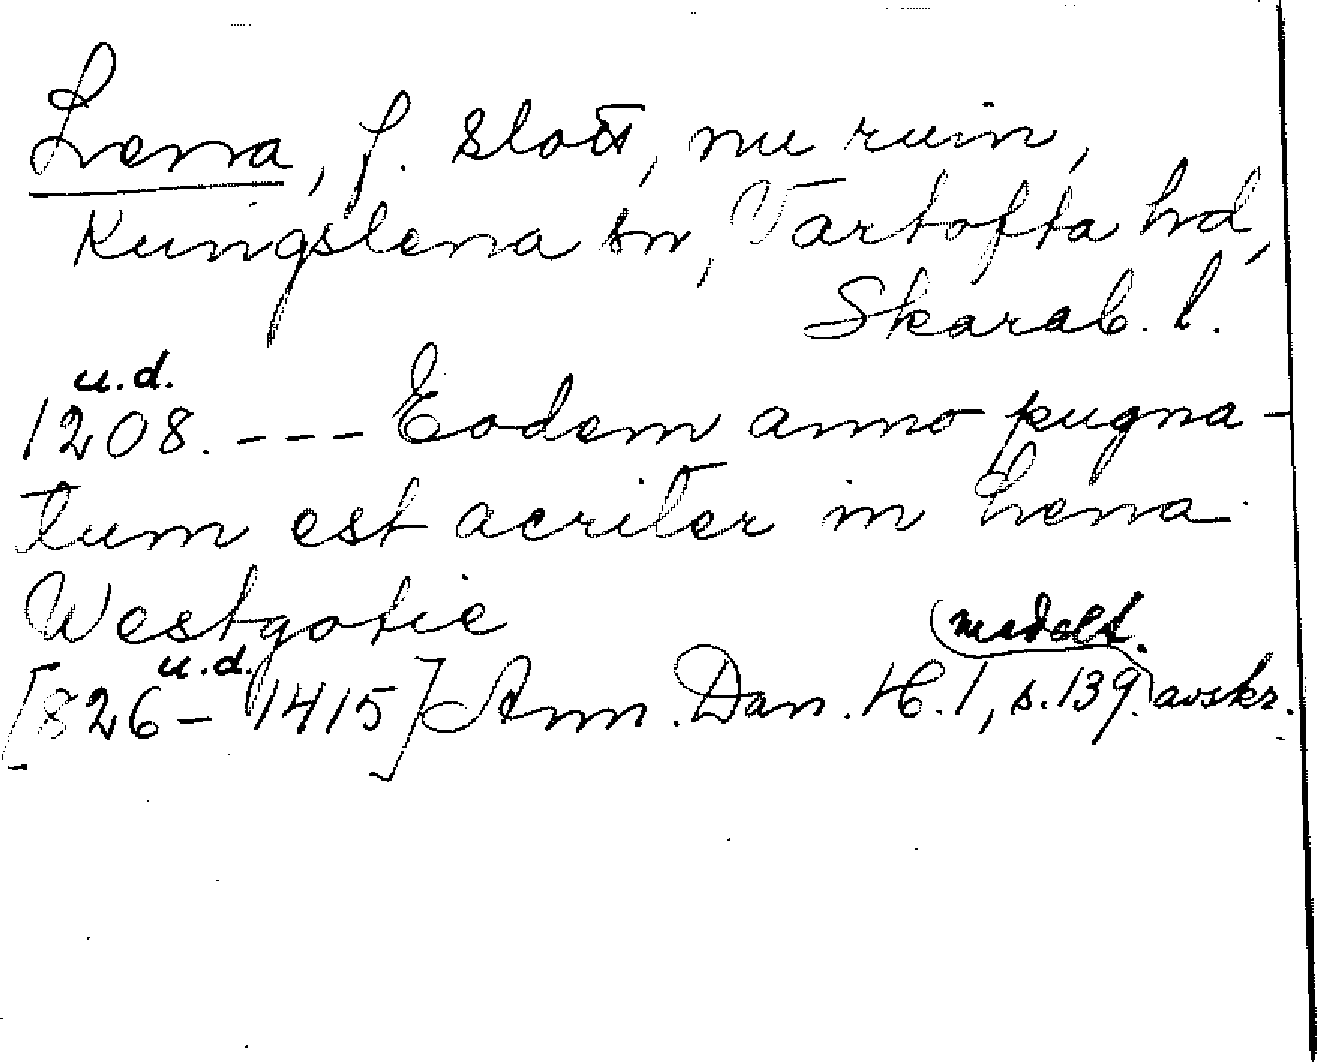 Lena, f. slott, nu ruin,
Kungslena sn, Vartofta hd,
Skarab. l.
u.d.
1208. --- Eodem anno pugna-
tum est acriter in Lena
Westgotie
medelt.
u.d.
[826 - 1415] Ann. Dan. H. 1, s. 139. avskr.